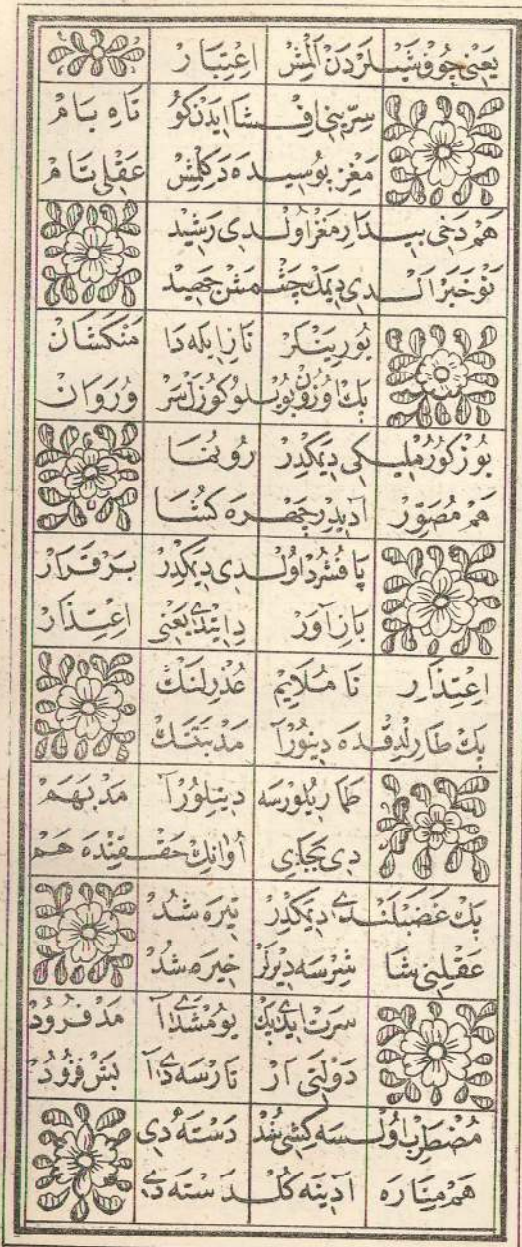 یعنی چوق شیلردن آلمش اعتبار
سرینی افشا ایدن کو تاه بام
مغز بوسیده دکلمش عقلی تام
هم دخی بیدار مغز اولدی رشید
نو خبر الدی دیمك چشمش جهید
یورینکر نازایله دامنکشان
بك اوزون بویلو کوزل سر وروان
یوز کورملیکی دیمکدر رونما
هم مصور آدیدر چهره کشا
پا فشرد اولدی دیمکدر برقرار
باز آورد ایتدی یعنی اعتذار
اعتذار نا ملایم عذرلنك
بك طارلدقده دینور آمد بتنك
طاریلورسه دینلور آمد بهم
دی حقنده هم
بك غضبلندی دیمکدر تیره شد
عقلنی شاشرسه دیرلر خیره شد
سرت ایدی بك یومشدی آمد فرود
دولتی ارتارسه دی آبش فزود
مضطرب اولسه کشی شد دسته دی
هم مناره آدینه کلدسته دی